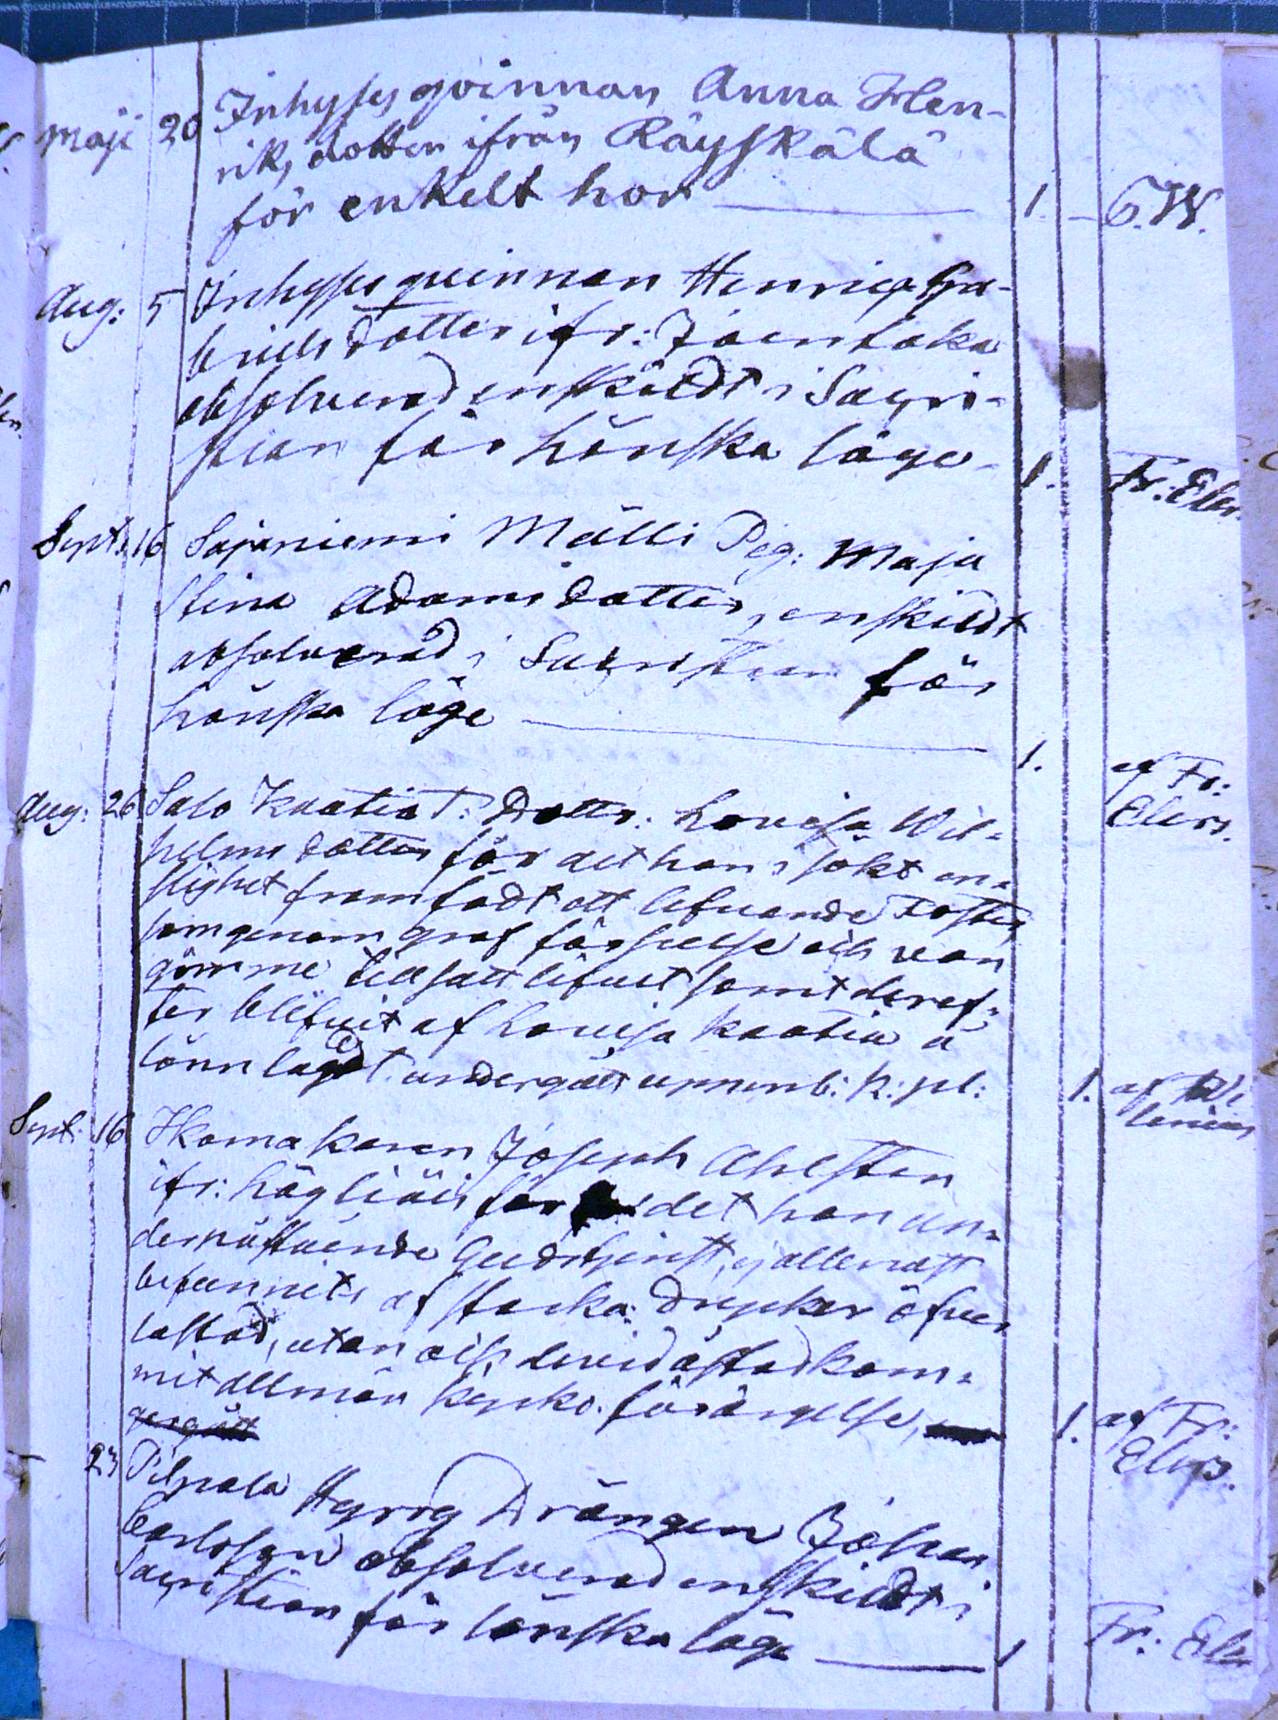 Maji 20 Inhyses qvinnan Anna Hen-
riks dotter ifrån Räyskälä
för enkelt hor 1. 6. W.
Aug: 5 Inhyses quinnan Henrica Ga-
briels dotter ifr: Joentaka
absolverad enskildt i Sacri-
stian för lönska läge. 1. Fr: Elers.
Sept. 16 Sajaniemi Mälli Pig: Maja
Stina Adamsdotter, enskildt
absolverad i Sacristian för
lönska läge 1. af Fr:
Elers.
Aug: 26 Salo Kaatia T: Dottr: Lovisa Wil-
helms dotter för det hon i sökt en-
slighet framfödt ett lefvande Foster,
som genom graf förseelse och van
gömme tillsatt lifvet samt deref-
ter blifvit af Lovisa Kaatia å
lönn lagdt. undergått uppenb: k: pl: 1. af
Sept. 16 Skomakaren Joseph Ahlsten
ifr: Högliäis för det han un-
der påstående Gudstjenst, ej allenast
befunnits af starka drycker öfver
lastad, utan ock derwid åstadkom-
mit allmän kyrko. förargelse, 1. af Fr:
gergått Elers.
23 Pilpala Hyrry Drängen Johan
Carlsson absolverad enskildt i
Sacristian för lönska läge 1 Fr: Elers